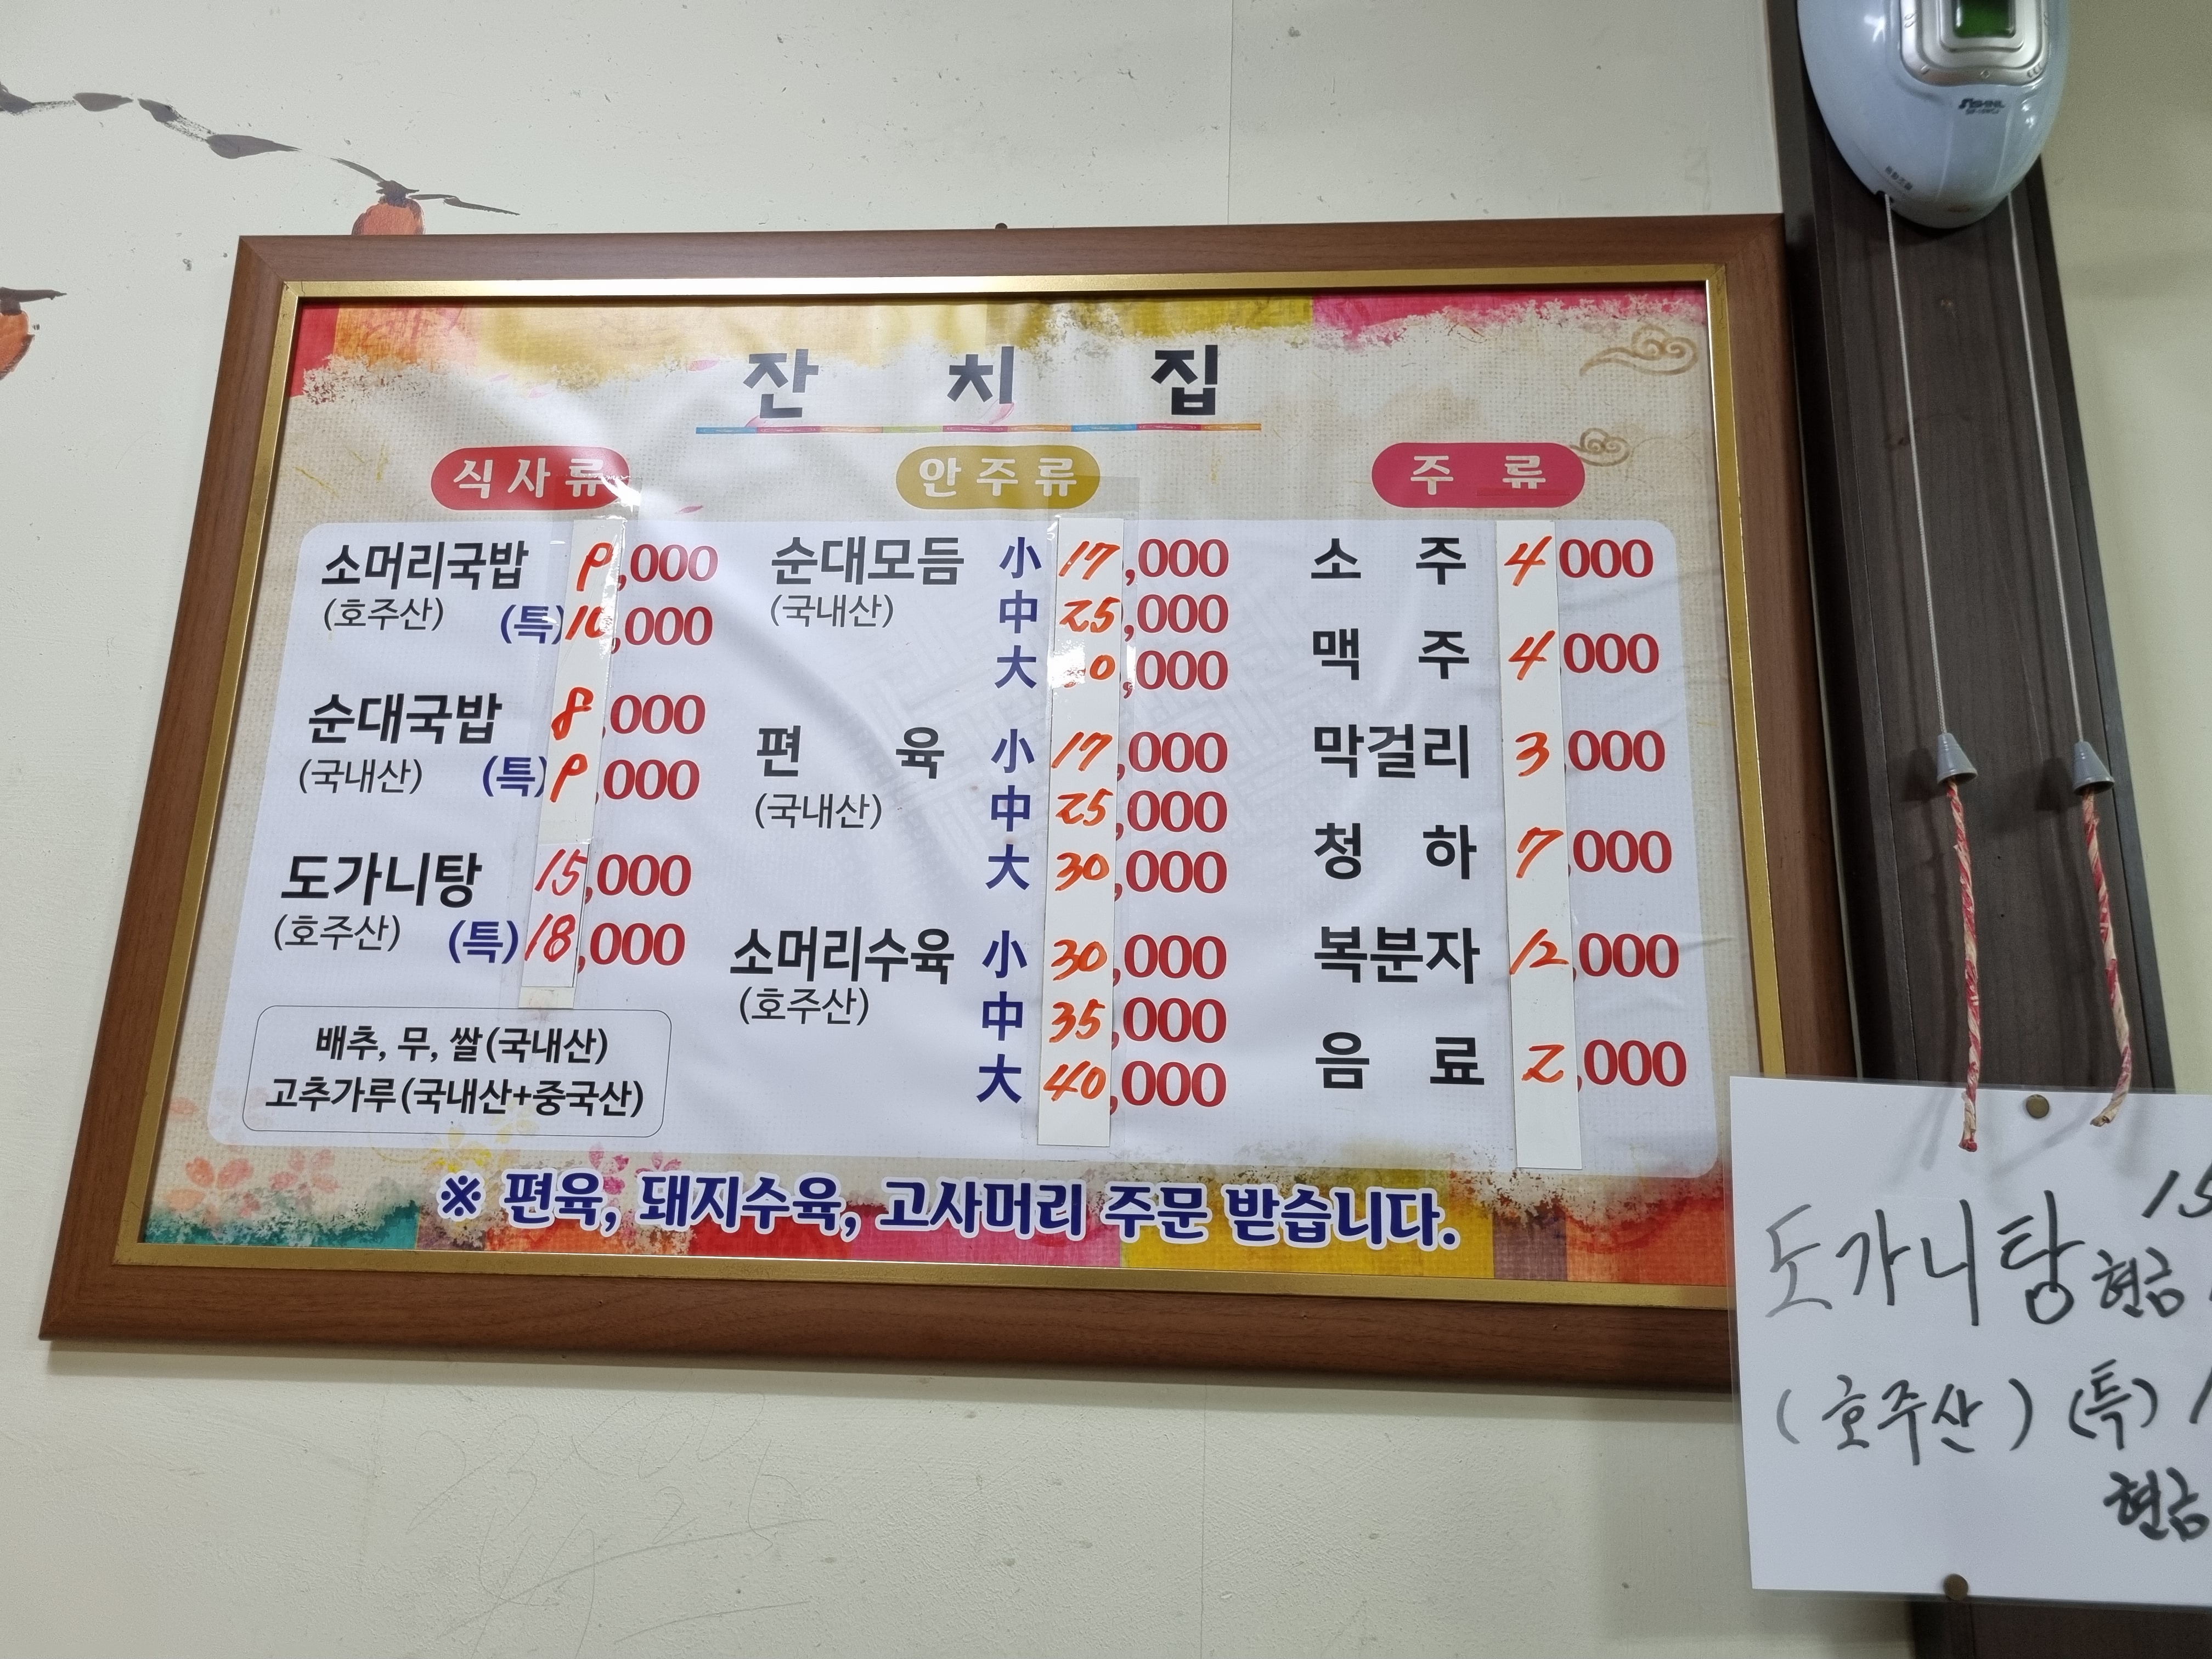 잔치집
식사류
소머리국밥 9,000
(호주산) (특) 10,000
순대국밥 8,000
(국내산) (특) 9,000
도가니탕 15,000
(호주산) (특) 18,000
배추, 무, 쌀(국내산)
고추가루(국내산+중국산)
안주류
순대모듬 小 17,000
(국내산) 中 25,000
大
편육 小 17,000
(국내산) 中 25,000
大 30,000
소머리수육 小 30,000
(호주산) 中 35,000
大 40,000
주류
소주 4000
맥주 4000
막걸리 3000
청하 7,000
복분자 12,000
음료 2,000
※ 편육, 돼지수육, 고사머리 주문 받습니다.
SHINIL
도가니탕 15
현금
(호주산) (특)
현금